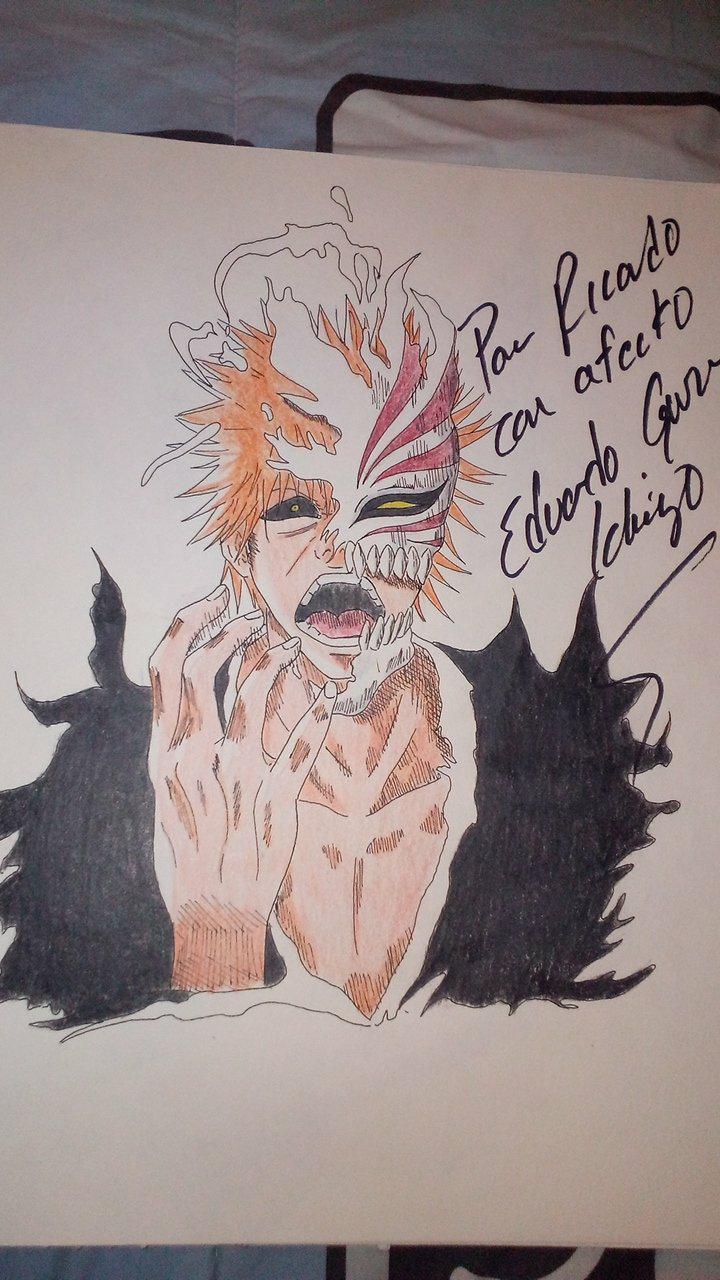 Para Ricardo
con afecto
Eduardo
Ichigo